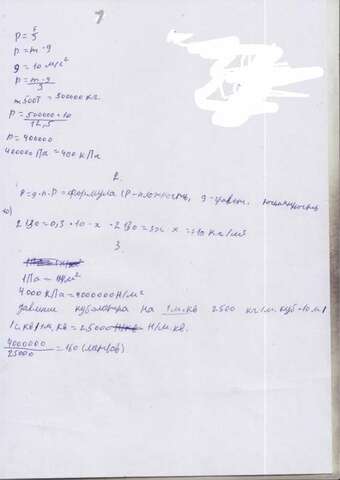 1
P = F/S
P = m · g
g = 10 м/с²
P = m · g / S
m 500Т = 500000 кг.
P = 500000 · 10 / 12,5
P = 400000
400000 Па = 400 кПа
2.
P = g · h · P = формула (P - плотность, g -
2130 = 0,3 · 10 · x · 2130 = 3x x = 710 кг/м³
3.
1 Па = 1 Н/м²
4000 кПа = 4000000 Н/м²
давление кубометра на 1 м.кв 2500 кг/м.куб · 10 м/
/с.кв/1 м.кв = 25000 Н/м.кв.
4000000 / 25000 = 160 (метров)